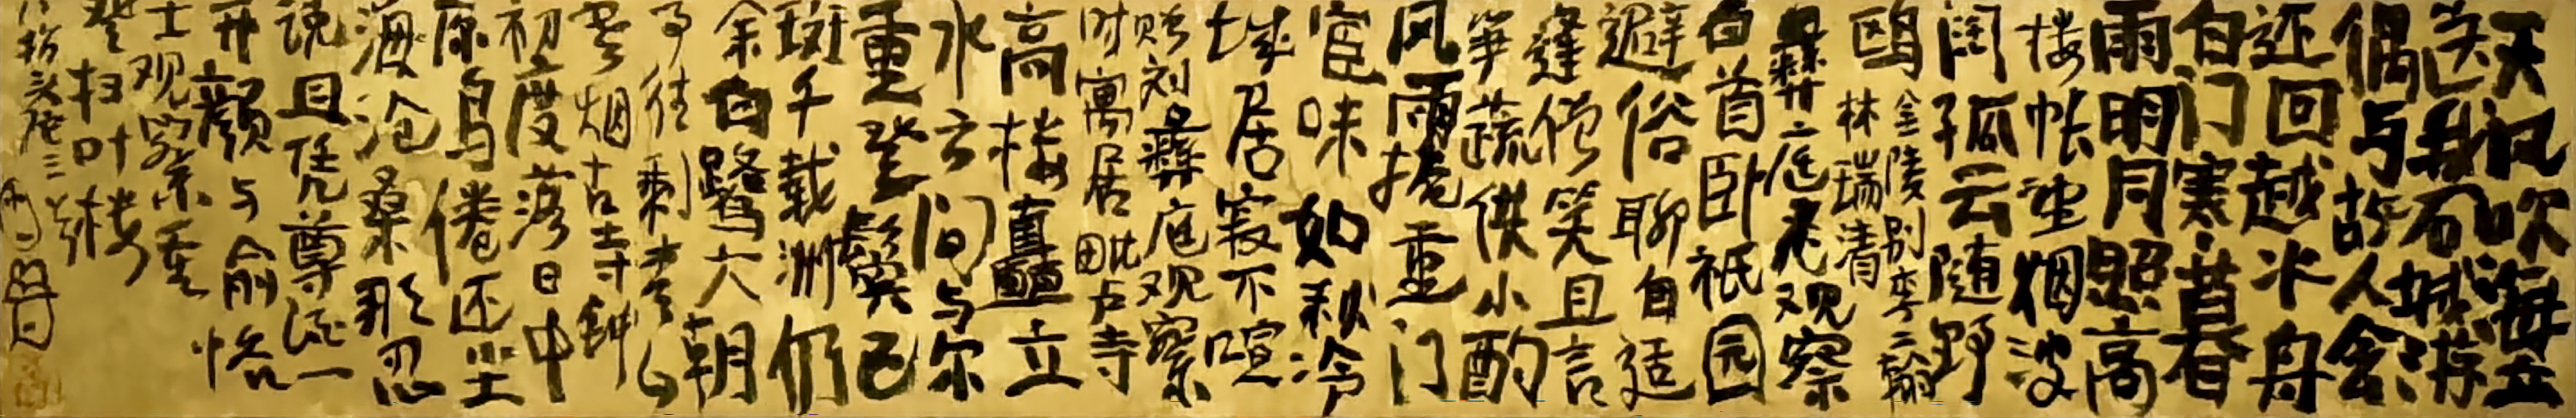 天风吹海立
送我石城游
偶与故人会
还回越米舟
白门寒暮春
雨明月照高
楼怅望烟波
阔孤云随野
鸥金陵别李二翰
林瑞清
彝庭老观察
白首卧祇园
避俗聊自适
逢僧笑且言
笋蔬供小酌
风雨掩重门
宦味如秋冷
城居寂不喧
赠刘彝庭观察
时寓居毗卢寺
高楼矗立
水云间与尔
重登鬓已
斑千载洲仍
余白鹭六朝
事往剩青山
云烟古寺钟
初度落日中
原鸟倦还坐
海沧桑那忍
说且凭尊酒一
开颜与俞恪
士观察重
登扫叶楼